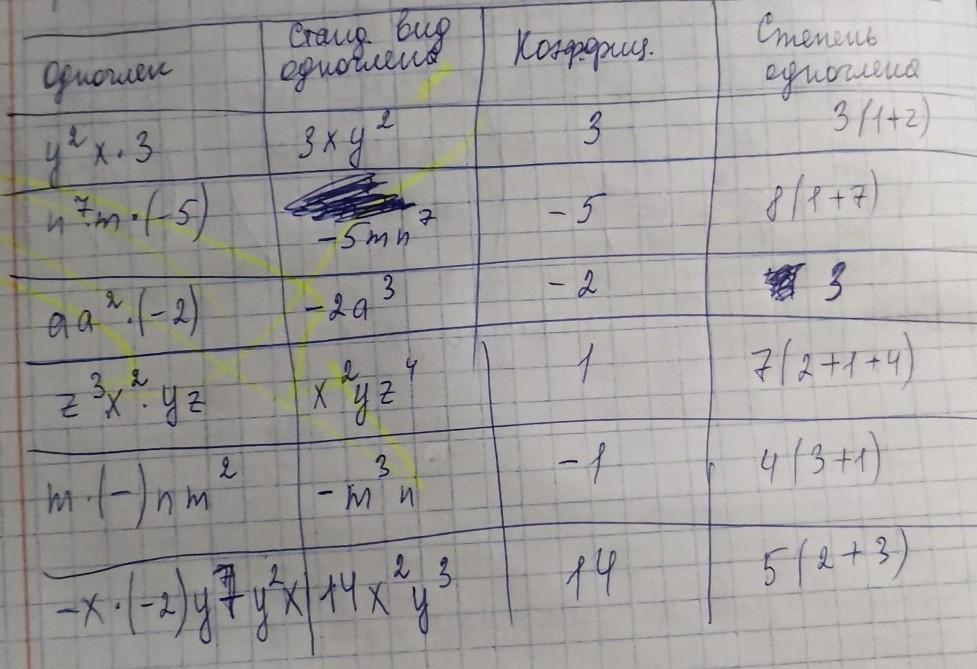 Одночлен Станд. вид одночлена Коэффиц. Степень одночлена
y² x · 3 3xy² 3 3(1+2)
n⁷m · (-5) -5mn⁷ -5 8(1+7)
aa² · (-2) -2a³ -2 3
z³x² · yz x²yz⁴ 1 7(2+1+4)
m · (-)nm² -m³n -1 4(3+1)
-x · (-2)y7y²x 14x²y³ 14 5(2+3)